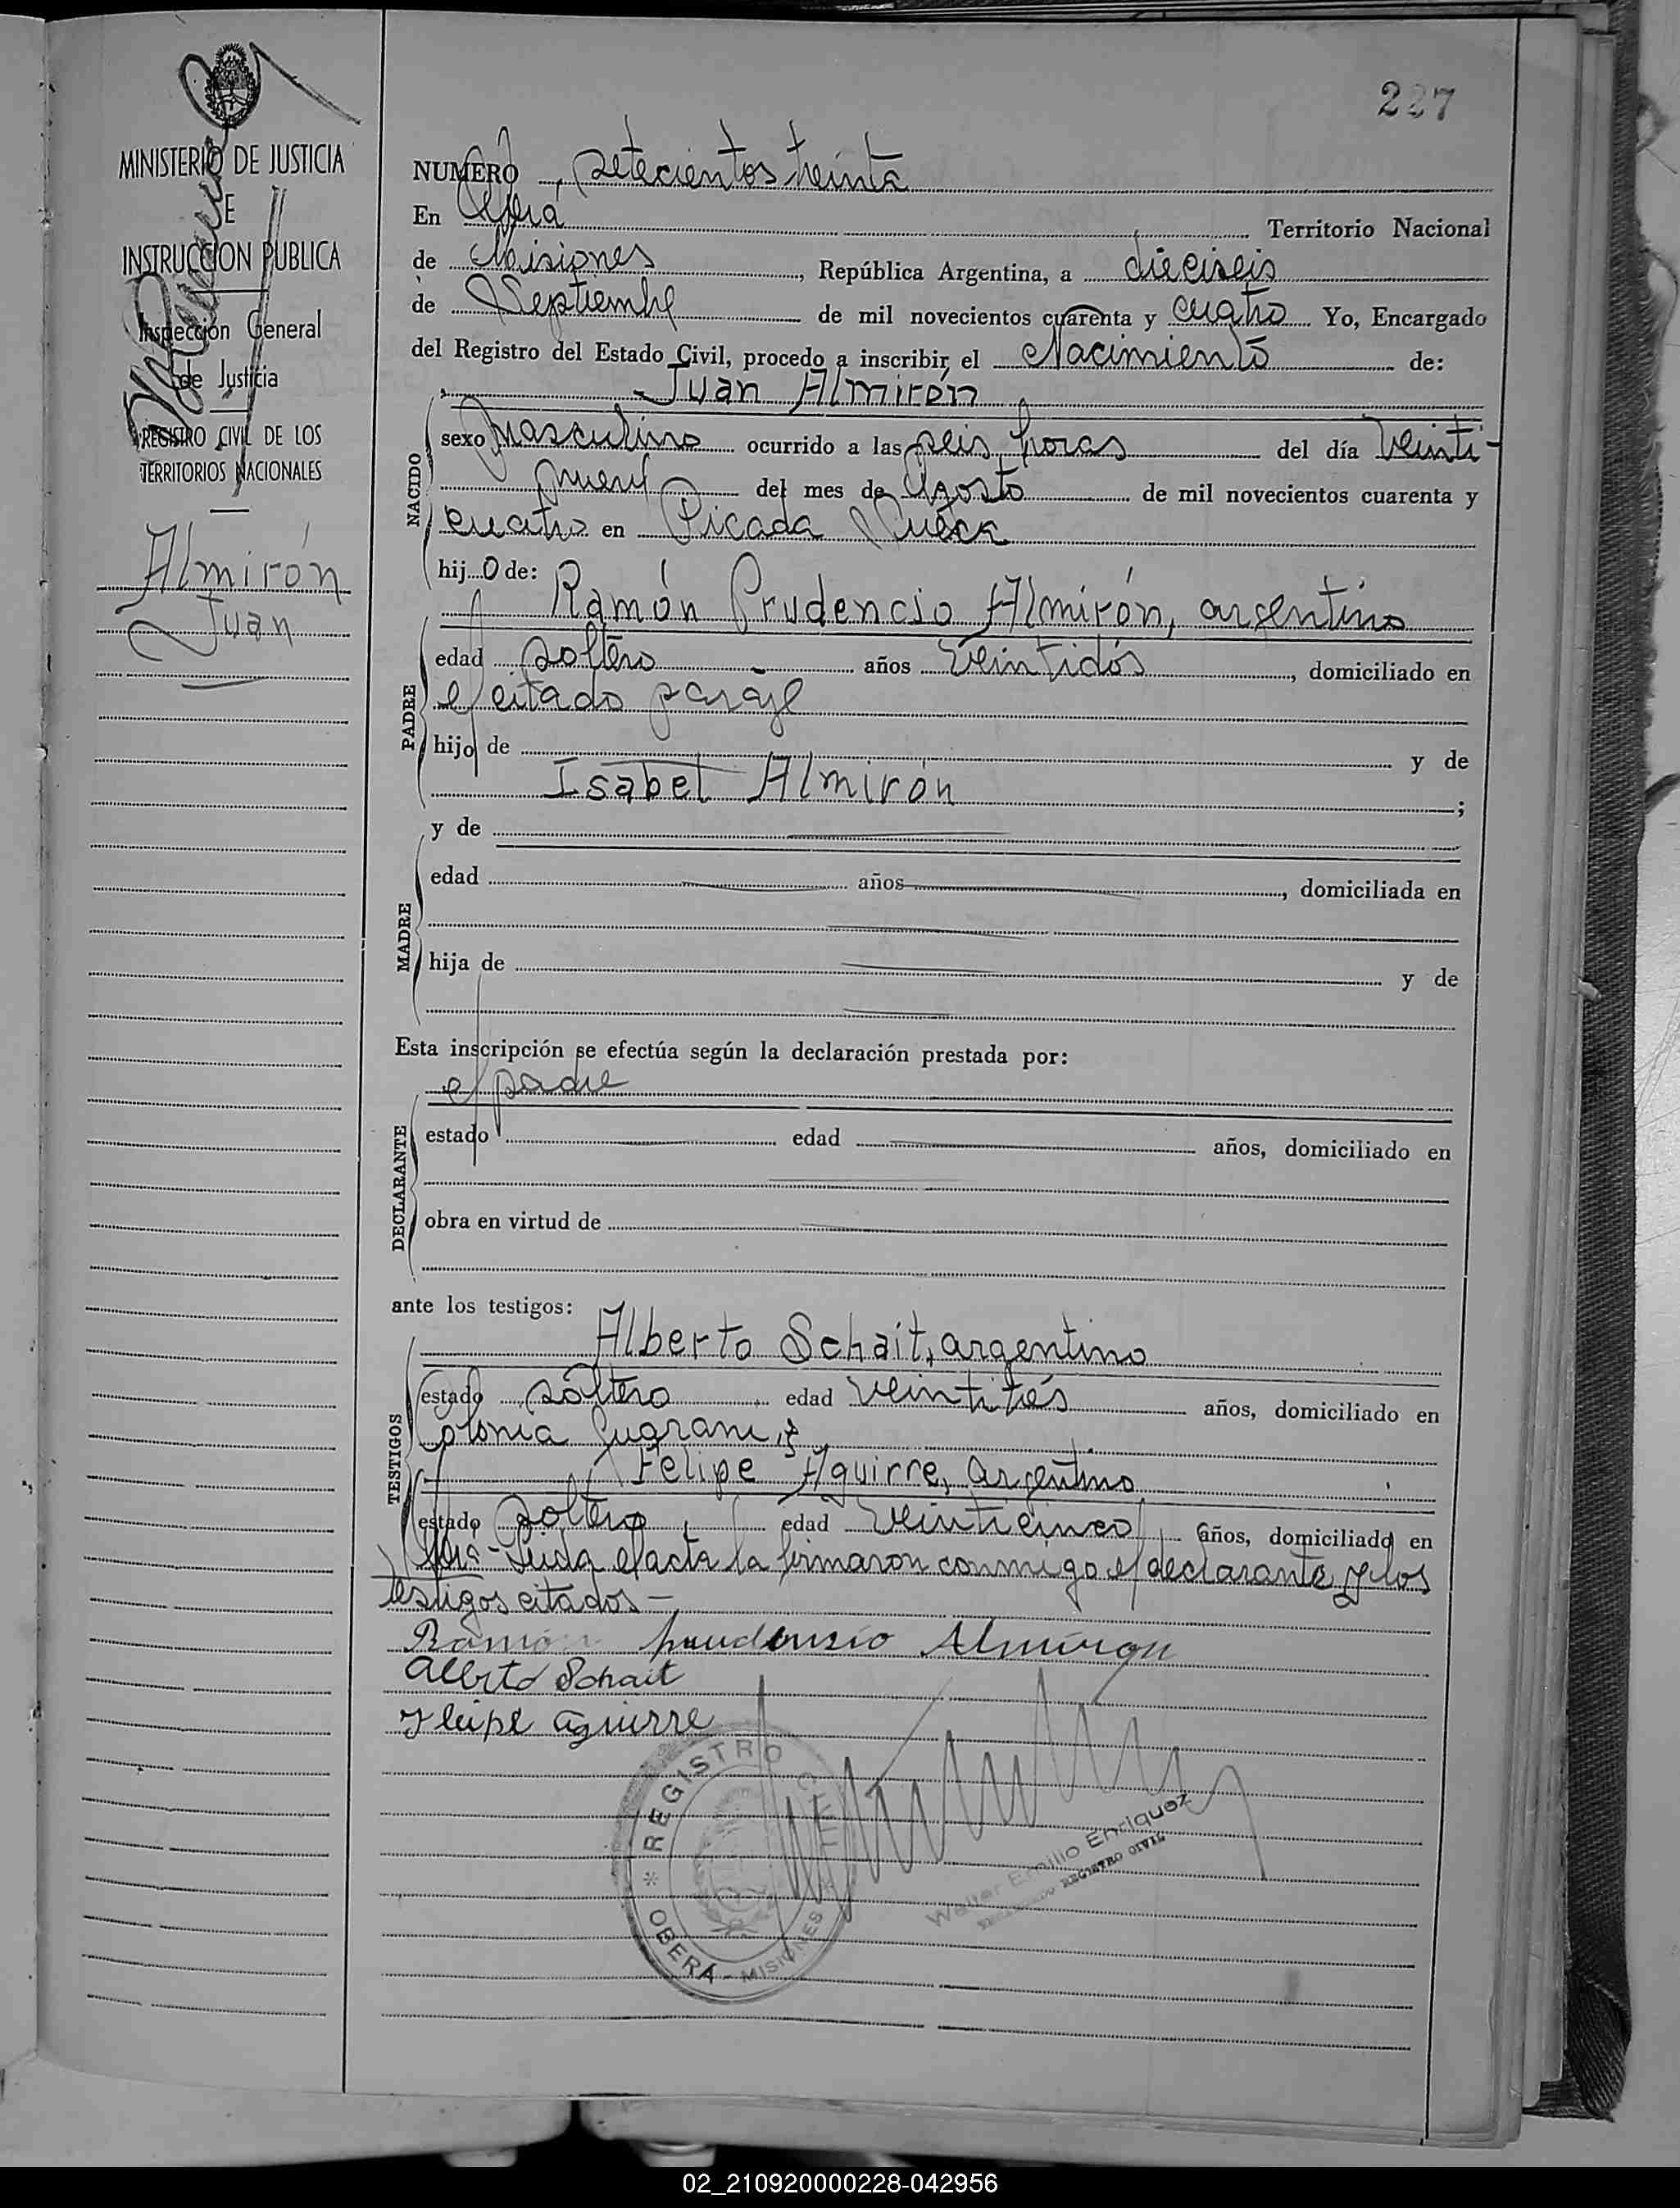 227
MINISTERIO DE JUSTICIA
E
INSTRUCCION PUBLICA
Inspección General
de Justicia
REGISTRO CIVIL DE LOS
TERRITORIOS NACIONALES
Almirón
Juan
NUMERO setecientos treinta
En Oberá Territorio Nacional
de Misiones, República Argentina, a dieciseis
de Septiembre de mil novecientos cuarenta y cuatro Yo, Encargado
del Registro del Estado Civil, procedo a inscribir el Nacimiento de:
Juan Almirón
NACIDO
sexo masculino ocurrido a las seis horas del día veinti-
nueve del mes de Agosto de mil novecientos cuarenta y
cuatro en Picada
hijo de:
Ramón Prudencio Almirón, argentino
PADRE
edad soltero años veintidós, domiciliado en
el citado paraje
hijo de y de
Isabel Almirón ;
MADRE
y de
edad años , domiciliada en
hija de y de
Esta inscripción se efectúa según la declaración prestada por:
el padre
DECLARANTE
estado edad años, domiciliado en
obra en virtud de
ante los testigos:
Alberto Schait, argentino
TESTIGOS
estado soltero edad veintitrés años, domiciliado en
Colonia y
Felipe Aguirre, argentino
estado soltero, edad veinticinco, años, domiciliado en
Oberá - Leída el acta la firmaron conmigo el declarante y los
testigos citados -
Ramón prudensio Almiron
Alberto Schait
Felipe aguirre
REGISTRO CIVIL
OBERÁ - MISIONES
Walter Emilio Enriquez
ENCARGADO REGISTRO CIVIL
02_210920000228-042956